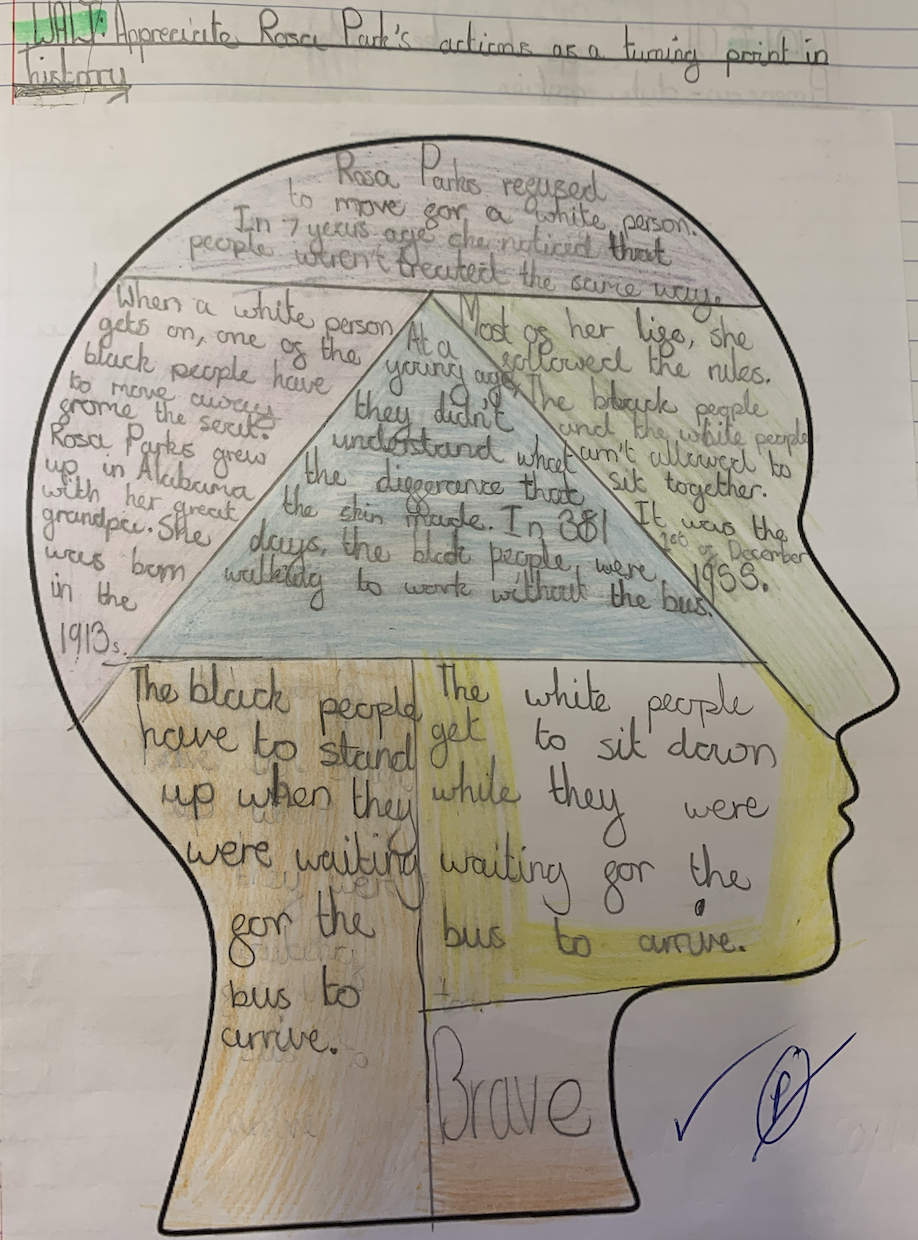 WALT: Appreciate Rosa Park's actions as a turning print in
history
Rosa Parks regused
to move gor a white person.
In 7 years age she noticed that
people weren't treated the same way.
When a white person
gets on, one of the
black people have
to move away
grome the seat.
Rosa Parks grew
up in Alabama
with her great
grandpa. She
was born
in the
1913s.
At a
young age,
they didn't
understand what
the diggerance that
the skin made. In 381
days, the black people, were
walking to work without the bus.
Most og her lige, she
gollowed the rules.
The black people
and the white people
am't allowed to
sit together.
It was the
1st og December
1955.
The black people
have to stand
up when they
were waiting
gor the
bus to
arrive.
The white people
get to sit down
while they were
waiting gor the
bus to arrive.
Brave